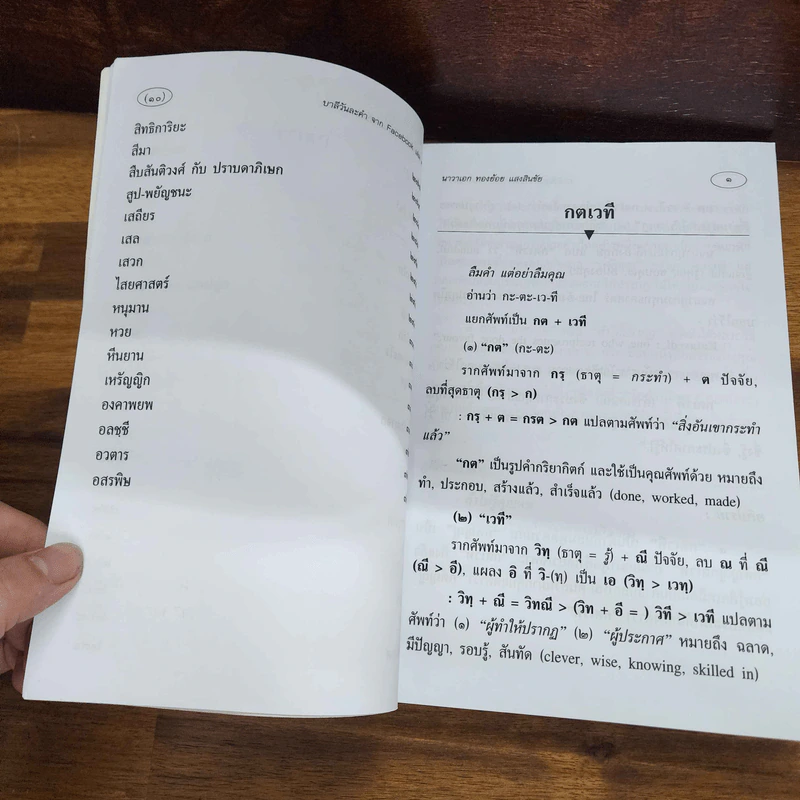 (๑๐)
บาลีวันละคำ จาก Facebook
สิทธิการิยะ
สีมา
สืบสันติวงศ์ กับ ปราบดาภิเษก
สูป-พยัญชนะ
เสถียร
เสล
เสวก
ไสยศาสตร์
หนุมาน
หวย
หีนยาน
เหรัญญิก
องคาพยพ
อลชฺชี
อวตาร
อสรพิษ
นาวาเอก ทองย้อย แสงสินชัย
๑
กตเวที
ลืมคำ แต่อย่าลืมคุณ
อ่านว่า กะ-ตะ-เว-ที
แยกศัพท์เป็น กต + เวที
(๑) “กต” (กะ-ตะ)
รากศัพท์มาจาก กรฺ (ธาตุ = กระทำ) + ต ปัจจัย,
ลบที่สุดธาตุ (กรฺ > ก)
: กรฺ + ต = กรต > กต แปลตามศัพท์ว่า “สิ่งอันเขากระทำ
แล้ว”
“กต” เป็นรูปคำกริยากิตก์ และใช้เป็นคุณศัพท์ด้วย หมายถึง
ทำ, ประกอบ, สร้างแล้ว, สำเร็จแล้ว (done, worked, made)
(๒) “เวที”
รากศัพท์มาจาก วิทฺ (ธาตุ = รู้) + ณี ปัจจัย, ลบ ณ ที่ ณี
(ณี > อี), แผลง อิ ที่ วิ-(ทฺ) เป็น เอ (วิทฺ > เวทฺ)
: วิทฺ + ณี = วิทณี > (วิท + อี = ) วิที > เวที แปลตาม
ศัพท์ว่า (๑) “ผู้ทำให้ปรากฏ” (๒) “ผู้ประกาศ” หมายถึง ฉลาด,
มีปัญญา, รอบรู้, สันทัด (clever, wise, knowing, skilled in)